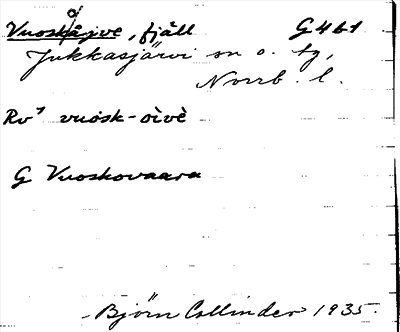 Vuoskåive, fjäll G4b1
Jukkasjärvi sn o. tg,
Norrb. l.
Rv⁷ vuosk-oìvè
G Vuoskovaara
Björn Collinder 1935.